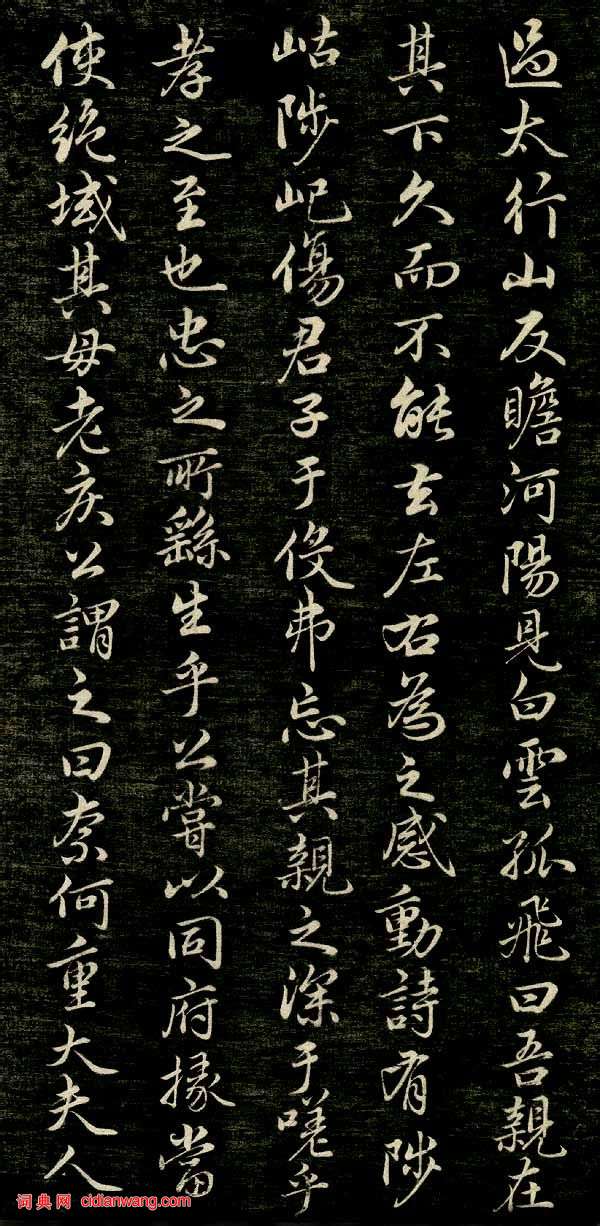 過太行山反瞻河陽見白雲孤飛曰吾親在
其下久而不能去左右為之感動詩有陟
岵陟屺傷君子于役弗忘其親之深于嗟乎
孝之至也忠之所繇生乎公嘗以同府掾當
使絕域其母老疾公謂之曰奈何重大夫人
词典网 cidianwang.com